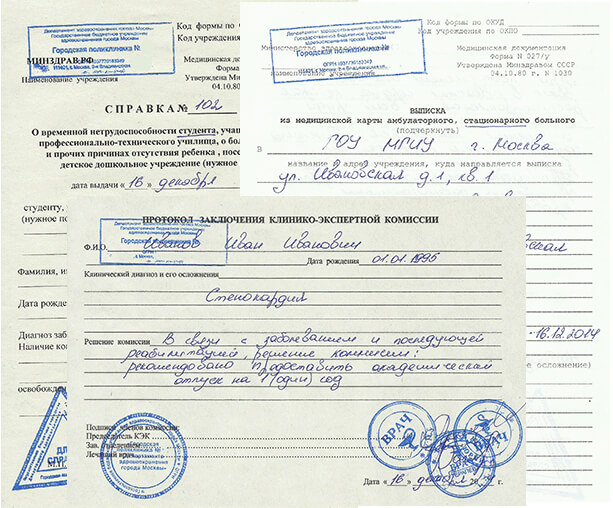 Код формы по О
Код учреждения
Департамент здравоохранения города Москвы
Государственное бюджетное учреждение
здравоохранения города Москвы
Городская поликлиника №
МИНЗДРАВ РФ
Наименование учреждения
Медицинская до
Форма
Утверждена Мин
04.10.80
СПРАВКА № 102
О временной нетрудоспособности студента, учащ
профессионально-технического училища, о бол
и прочих причинах отсутствия ребенка, посе
детское дошкольное учреждение (нужное
дата выдачи « 16 » декабря
студенту,
(нужное по
Фамилия, и
Дата рожде
Диагноз заб
Наличие ко
освобожден
Код формы по ОКУД
Код учреждения по ОКПО
Департамент здравоохранения города Москвы
Государственное бюджетное учреждение
здравоохранения города Москвы
Городская поликлиника №
Медицинская документация
Форма N 027/у
Утверждена Минздравом СССР
04.10.80 г. N 1030
наименование учреждения
ВЫПИСКА
из медицинской карты амбулаторного, стационарного больного
(подчеркнуть)
В ГОУ МГИУ г. Москва
название и адрес учреждения, куда направляется выписка
ул. Ивановская д.1, кв. 1
вская
16.12.2014
ое осложнение)
ПРОТОКОЛ ЗАКЛЮЧЕНИЯ КЛИНИКО-ЭКСПЕРТНОЙ КОМИССИИ
Департамент здравоохранения города Москвы
Государственное бюджетное учреждение
здравоохранения города Москвы
Городская поликлиника №
Ф.И.О. Иванов Иван Иванович
Дата рождения 01.01.1995
Клинический диагноз и его осложнения
Стенокардия
Решение комиссии В связи с заболеванием и последующей
реабилитацией, решение комиссии:
рекомендовано предоставить академический
отпуск на 1 (один) год
Подписи членов комиссии:
Председатель КЭК
Зав. отделением
Лечащий врач
ВРАЧ
ВРАЧ
Дата « 16 » декабря 20 г.